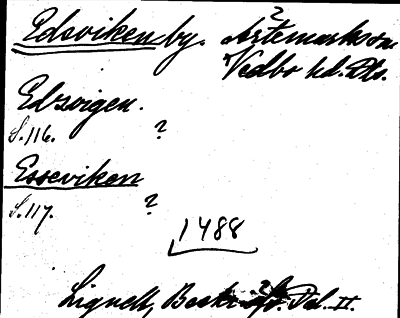 Edsviken by. ? Ärtemarks sn.
Vedbo hd. Dls.
Edzvigen.
S. 116. ?
Esseviken
S. 117. ?
1488
Lignell, Beskr. Dal. II.